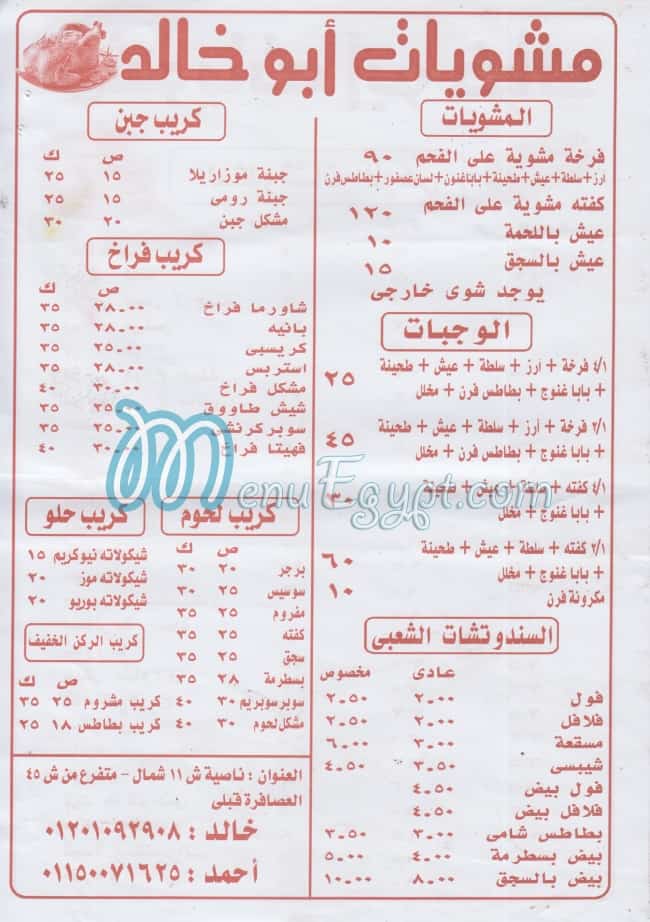 مشويات أبو خالد
المشويات
فرخة مشوية على الفحم ٩٠
أرز + سلطة + عيش + طحينة + باباغنون + لسان عصفور + بطاطس فرن
كفته مشوية على الفحم ١٢٠
عيش باللحمة ١٠
عيش بالسجق ١٥
يوجد شوى خارجى
الوجبات
٤/١ فرخة + أرز + سلطة + عيش + طحينة
+ بابا غنوج + بطاطس فرن + مخلل ٢٥
٢/١ فرخة + أرز + سلطة + عيش + طحينة
+ بابا غنوج + بطاطس فرن + مخلل ٤٥
٤/١ كفته + سلطة + عيش + طحينة
+ بابا غنوج + مخلل ٣٠
٢/١ كفته + سلطة + عيش + طحينة
+ بابا غنوج + مخلل ٦٠
مكرونة فرن ١٠
السندوتشات الشعبى
عادى مخصوص
فول ٢.٠٠ ٢.٥٠
فلافل ٢.٠٠ ٢.٥٠
مسقعة ٣.٠٠ ٦.٠٠
شيبسى ٣.٥٠ ٤.٥٠
فول بيض ٤.٥٠
فلافل بيض ٤.٥٠
بطاطس شامى ٣.٠٠ ٣.٥٠
بيض بسطرمة ٤.٠٠ ٥.٠٠
بيض بالسجق ٨.٠٠ ١٠.٠٠
كريب جبن
ص ك
جبنة موزاريلا ١٥ ٢٥
جبنة رومى ١٥ ٢٥
مشكل جبن ٢٠ ٣٠
كريب فراخ
ص ك
شاورما فراخ ٢٨.٠٠ ٣٥
بانيه ٢٨.٠٠ ٣٥
كريسبى ٢٥.٠٠ ٣٥
استربس ٢٨.٠٠ ٣٥
مشكل فراخ ٣٠.٠٠ ٤٠
شيش طاووق ٢٥.٠٠ ٣٥
سوبر كرنشى ٢٥.٠٠ ٣٥
فهيتا فراخ ٣٠.٠٠ ٤٠
MenuEgypt.com
كريب لحوم
ص ك
برجر ٢٠ ٣٠
سوسيس ٢٥ ٣٠
مفروم ٢٥ ٣٥
كفته ٢٥ ٣٥
سجق ٢٥ ٣٥
بسطرمة ٢٨ ٣٥
سوبر سوبريم ٣٠ ٤٠
مشكل لحوم ٣٠ ٤٠
كريب حلو
شيكولاته نيوكريم ١٥
شيكولاته موز ٢٠
شيكولاته بوريو ٢٠
كريب الركن الخفيف
ص ك
كريب مشروم ٢٥ ٣٥
كريب بطاطس ١٨ ٢٥
العنوان : ناصية ش ١١ شمال - متفرع من ش ٤٥
العصافرة قبلى
خالد : ٠١٢٠١٠٩٢٩٠٨
أحمد : ٠١١٥٠٠٧١٦٢٥